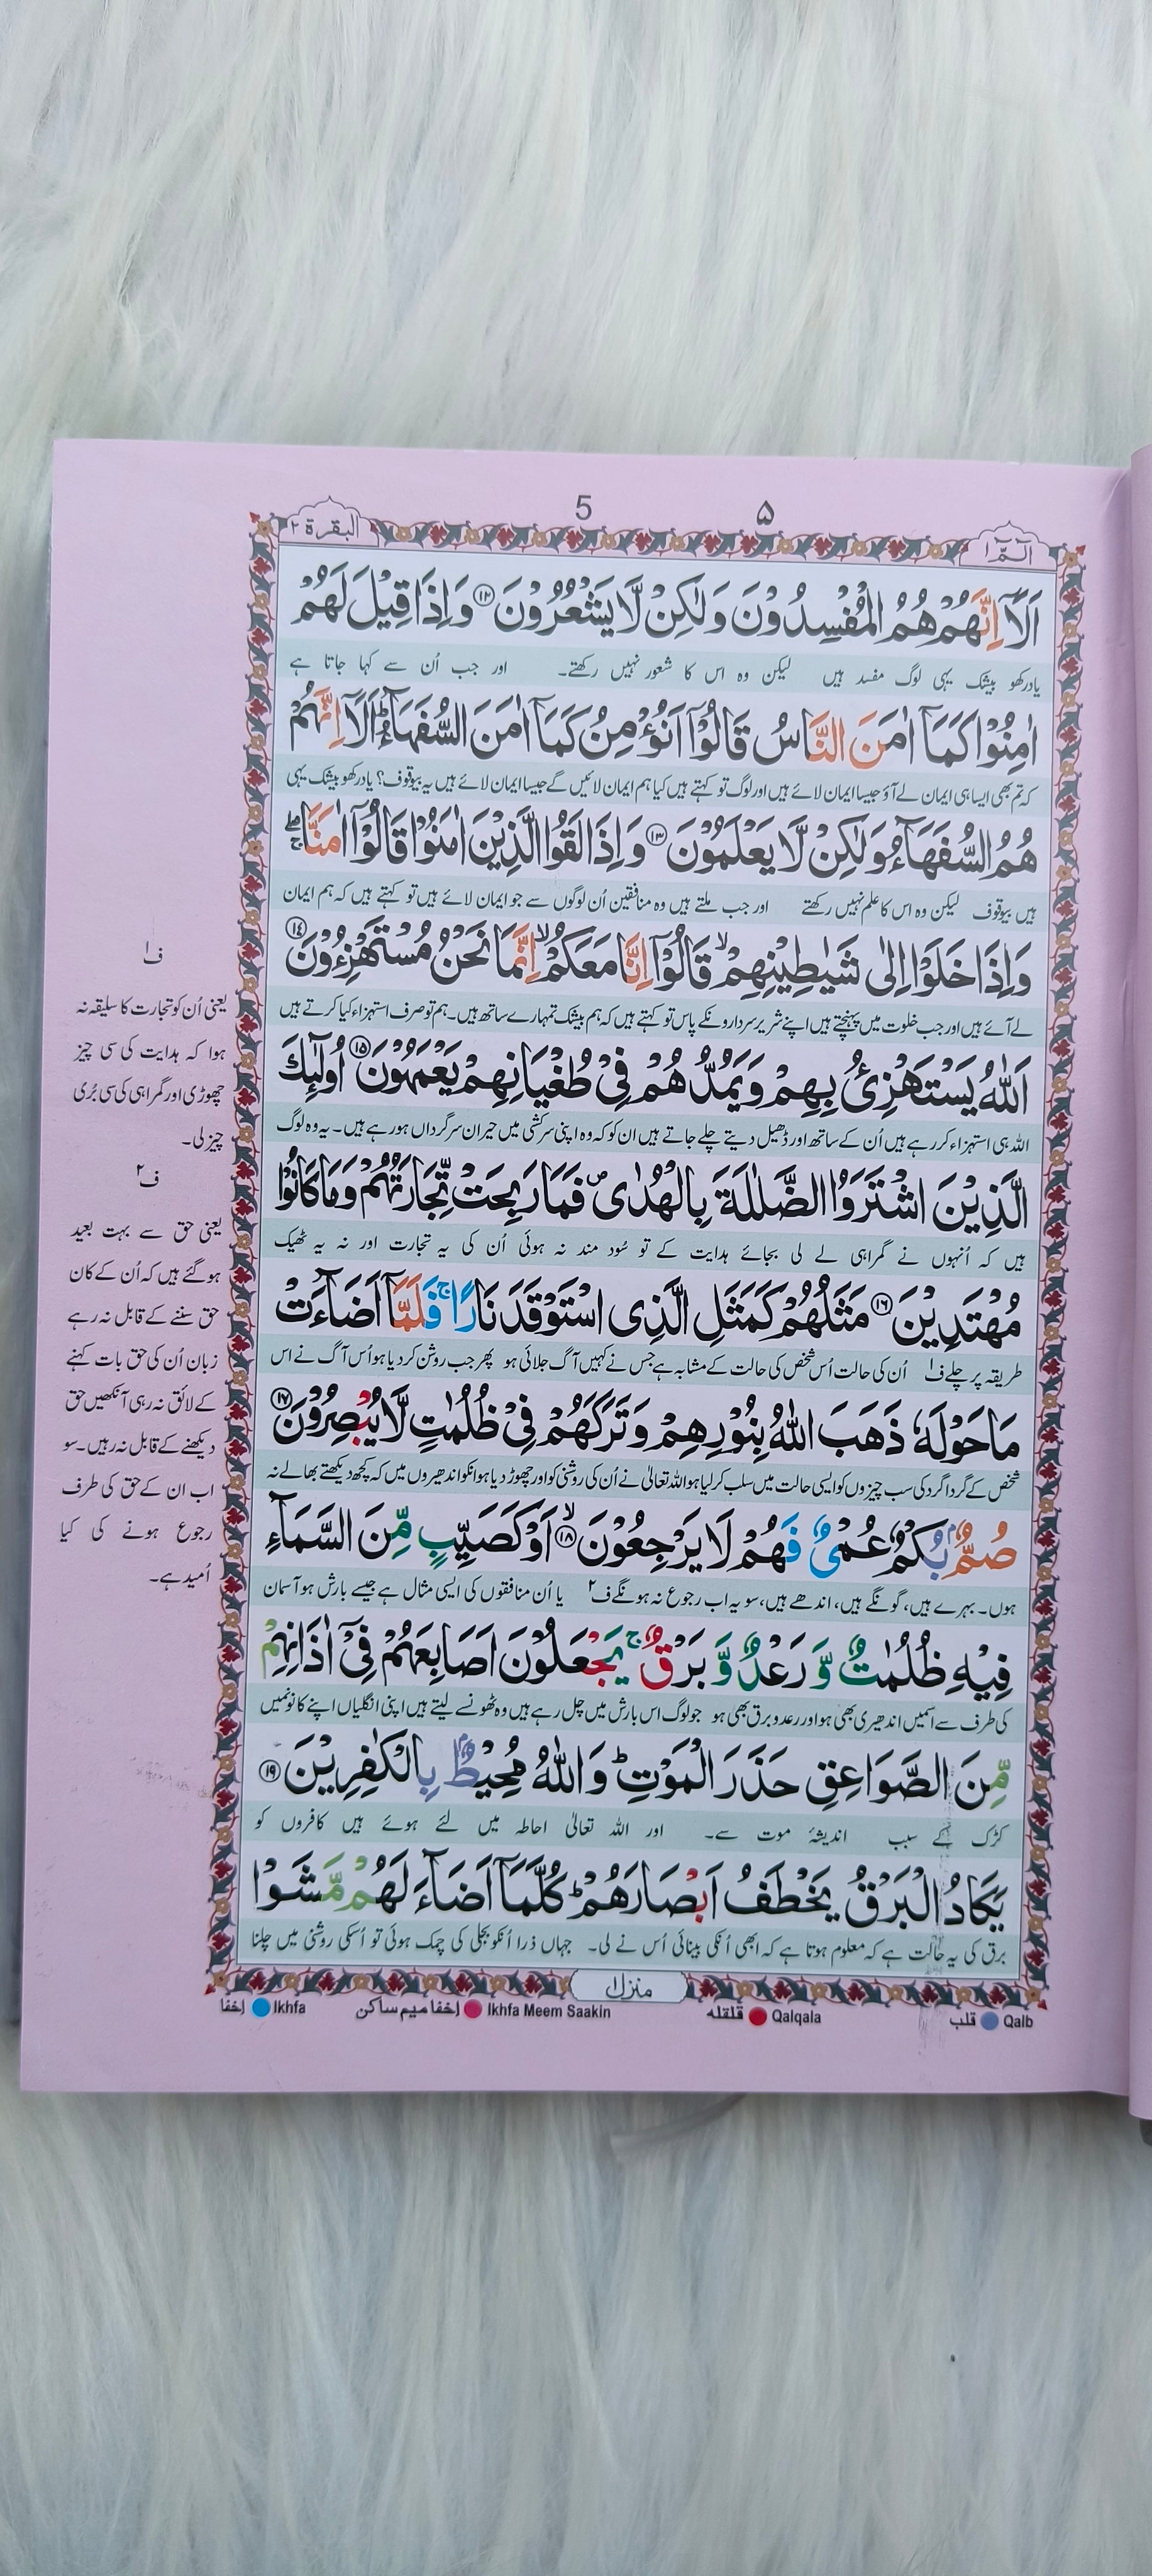 5 ۵
الٓمّٓ ١
البقرة ٢
اَلَاۤ اِنَّهُمْ هُمُ الْمُفْسِدُوْنَ وَلٰكِنْ لَّا يَشْعُرُوْنَ ⑫ وَاِذَا قِيْلَ لَهُمْ
یاد رکھو بیشک یہی لوگ مفسد ہیں لیکن وہ اس کا شعور نہیں رکھتے۔ اور جب اُن سے کہا جاتا ہے
اٰمِنُوْا كَمَاۤ اٰمَنَ النَّاسُ قَالُوْۤا اَنُؤْمِنُ كَمَاۤ اٰمَنَ السُّفَهَآءُ ؕ اَلَاۤ اِنَّهُمْ
کہ تم بھی ایسا ہی ایمان لے آؤ جیسا ایمان لائے ہیں اور لوگ تو کہتے ہیں کیا ہم ایمان لائیں گے جیسا ایمان لائے ہیں یہ بیوقوف؟ یاد رکھو بیشک یہی
هُمُ السُّفَهَآءُ وَلٰكِنْ لَّا يَعْلَمُوْنَ ⑬ وَاِذَا لَقُوا الَّذِيْنَ اٰمَنُوْا قَالُوْۤا اٰمَنَّا ۖۚ
ہیں بیوقوف لیکن وہ اس کا علم نہیں رکھتے اور جب ملتے ہیں وہ منافقین اُن لوگوں سے جو ایمان لائے ہیں تو کہتے ہیں کہ ہم ایمان
وَاِذَا خَلَوْا اِلٰى شَيٰطِيْنِهِمْ ۙ قَالُوْۤا اِنَّا مَعَكُمْ ۙ اِنَّمَا نَحْنُ مُسْتَهْزِءُوْنَ ⑭
لے آئے ہیں اور جب خلوت میں پہنچتے ہیں اپنے شریر سردارونکے پاس تو کہتے ہیں کہ ہم بیشک تمہارے ساتھ ہیں۔ ہم تو صرف استہزاء کیا کرتے ہیں
اَللّٰهُ يَسْتَهْزِئُ بِهِمْ وَيَمُدُّهُمْ فِىْ طُغْيَانِهِمْ يَعْمَهُوْنَ ⑮ اُولٰٓئِكَ
اللہ ہی استہزاء کر رہے ہیں اُن کے ساتھ اور ڈھیل دیتے چلے جاتے ہیں ان کو کہ وہ اپنی سرکشی میں حیران سرگرداں ہو رہے ہیں۔ یہ وہ لوگ
الَّذِيْنَ اشْتَرَوُا الضَّلٰلَةَ بِالْهُدٰى ۪ فَمَا رَبِحَتْ تِّجَارَتُهُمْ وَمَا كَانُوْا
ہیں کہ اُنہوں نے گمراہی لے لی بجائے ہدایت کے تو سُود مند نہ ہوئی اُن کی یہ تجارت اور نہ یہ ٹھیک
مُهْتَدِيْنَ ⑯ مَثَلُهُمْ كَمَثَلِ الَّذِى اسْتَوْقَدَ نَارًا ۚ فَلَمَّاۤ اَضَآءَتْ
طریقہ پر چلے ف۱ اُن کی حالت اُس شخص کی حالت کے مشابہ ہے جس نے کہیں آگ جلائی ہو پھر جب روشن کر دیا ہو اُس آگ نے اس
مَا حَوْلَهٗ ذَهَبَ اللّٰهُ بِنُوْرِهِمْ وَتَرَكَهُمْ فِىْ ظُلُمٰتٍ لَّا يُبْصِرُوْنَ ⑰
شخص کے گرداگرد کی سب چیزوں کو ایسی حالت میں سلب کر لیا ہو اللہ تعالیٰ نے اُن کی روشنی کو اور چھوڑ دیا ہو انکو اندھیروں میں کہ کچھ دیکھتے بھالے نہ
صُمٌّۢ بُكْمٌ عُمْىٌ فَهُمْ لَا يَرْجِعُوْنَ ۙ ⑱ اَوْ كَصَيِّبٍ مِّنَ السَّمَآءِ
ہوں۔ بہرے ہیں، گونگے ہیں، اندھے ہیں، سو یہ اب رجوع نہ ہونگے ف۲ یا اُن منافقوں کی ایسی مثال ہے جیسے بارش ہو آسمان
فِيْهِ ظُلُمٰتٌ وَّرَعْدٌ وَّبَرْقٌ ۚ يَجْعَلُوْنَ اَصَابِعَهُمْ فِىْۤ اٰذَانِهِمْ
کی طرف سے اسمیں اندھیری بھی ہو اور رعد و برق بھی ہو جو لوگ اس بارش میں چل رہے ہیں وہ ٹھونسے لیتے ہیں اپنی انگلیاں اپنے کانونمیں
مِّنَ الصَّوَاعِقِ حَذَرَ الْمَوْتِ ؕ وَاللّٰهُ مُحِيْطٌۢ بِالْكٰفِرِيْنَ ⑲
کڑک کے سبب اندیشۂ موت سے۔ اور اللہ تعالیٰ احاطہ میں لئے ہوئے ہیں کافروں کو
يَكَادُ الْبَرْقُ يَخْطَفُ اَبْصَارَهُمْ ؕ كُلَّمَاۤ اَضَآءَ لَهُمْ مَّشَوْا
برق کی یہ حالت ہے کہ معلوم ہوتا ہے کہ ابھی اُنکی بینائی اُس نے لی۔ جہاں ذرا اُنکو بجلی کی چمک ہوئی تو اُسکی روشنی میں چلنا
منزل ١
ف۱
یعنی اُن کو تجارت کا سلیقہ نہ
ہوا کہ ہدایت کی سی چیز
چھوڑی اور گمراہی کی سی بُری
چیز لی۔
ف۲
یعنی حق سے بہت بعید
ہو گئے ہیں کہ اُن کے کان
حق سننے کے قابل نہ رہے
زبان اُن کی حق بات کہنے
کے لائق نہ رہی آنکھیں حق
دیکھنے کے قابل نہ رہیں۔ سو
اب ان کے حق کی طرف
رجوع ہونے کی کیا
اُمید ہے۔
إخفا Ikhfa إخفا ميم ساكن Ikhfa Meem Saakin قلقله Qalqala قلب Qalb